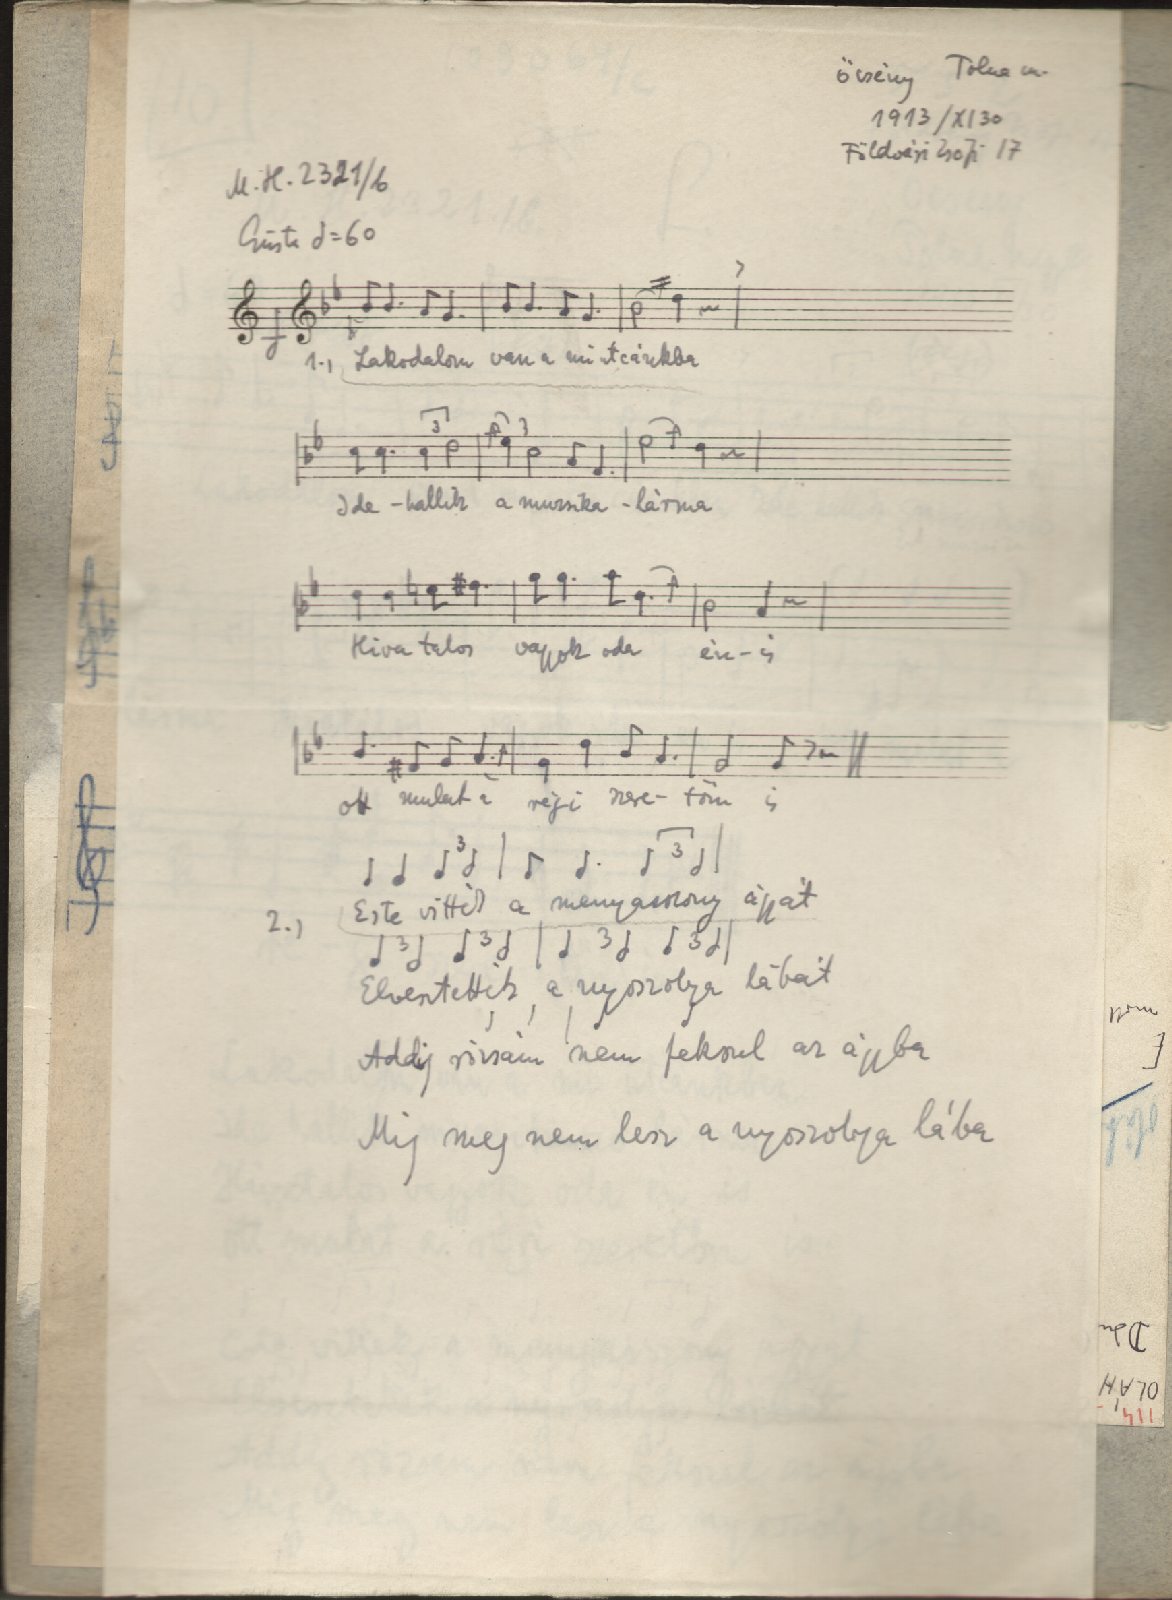 Őcsény Tolna m.
1913/XI30
Földvári Zsófi 17
M.H. 2321/b
Giusto ♩=60
1., Lakodalom van a mi utcánkba
Ide-hallik a muzsika-lárma
Hivatalos vagyok oda én-is
ott mulat a régi szere-tőm is
2., Este vitték a menyasszony ágyát
Elvesztették a nyoszolya lábát
Addig rózsám nem fekszel az ágyba
Mig meg nem lesz a nyoszolya lába
OLÁH
114